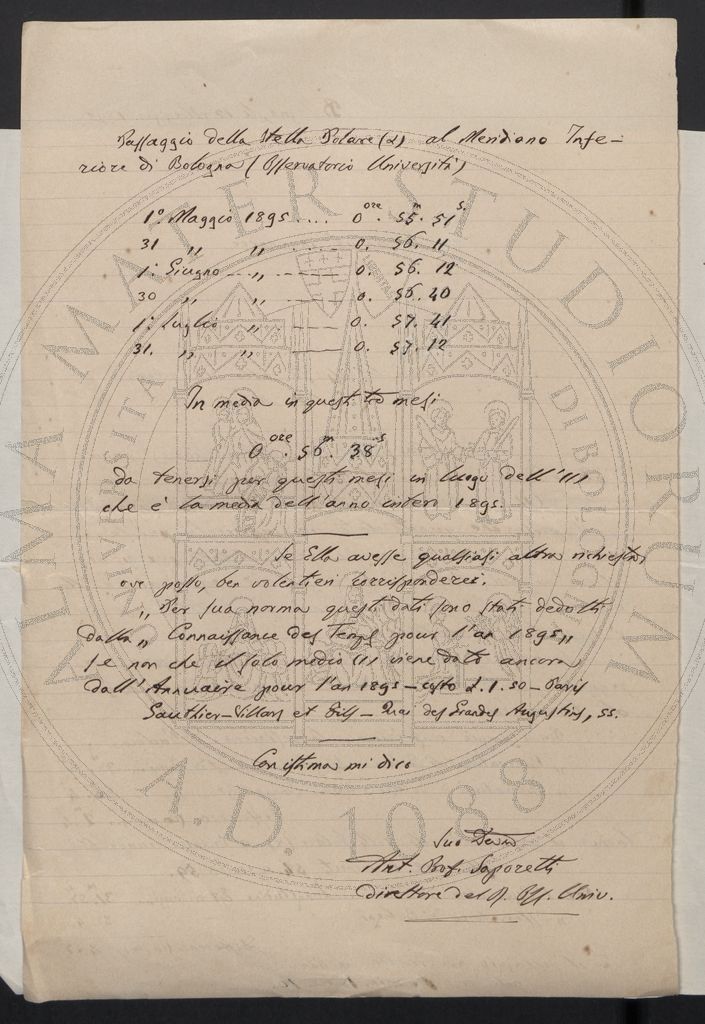 Passaggio della Stella Polare (α) al Meridiano Infe-
riore di Bologna (Osservatorio Università)
1º. Maggio 1895 .... 0 ore. 55 m. 51 s
31 „ „ ...... 0. 56. 11
1º. Giugno – „ ...... 0. 56. 12
30 „ „ ...... 0. 56. 40
1º. Luglio „ ...... 0. 57. 41
31. „ „ ...... 0. 57. 12
In media in questi tre mesi
0 ore. 56 m. 38 s
da tenersi per questi mesi in luogo dell'(1)
che è la media dell'anno intero 1895.
Se Ella avesse qualsiasi altra richiesta,
ove posso, ben volentieri corrisponderei.
„ Per sua norma questi dati sono stati dedotti
dalla „ Connaissance des Temps pour l'an 1895„
se non che il solo medio (1) viene dato ancora
dall'Annuaire pour l'an 1895 – costo L. 1.50 – Paris
Gauthier–Villars et Fils – Quai des Grands Augustins, 55.
Con istima mi dico
Suo Devmo
Ant. Prof. Saporetti
Direttore del R. Oss. Univ.
ALMA MATER STUDIORUM
UNIVERSITA DI BOLOGNA
LIBERTAS
A.D. 1088